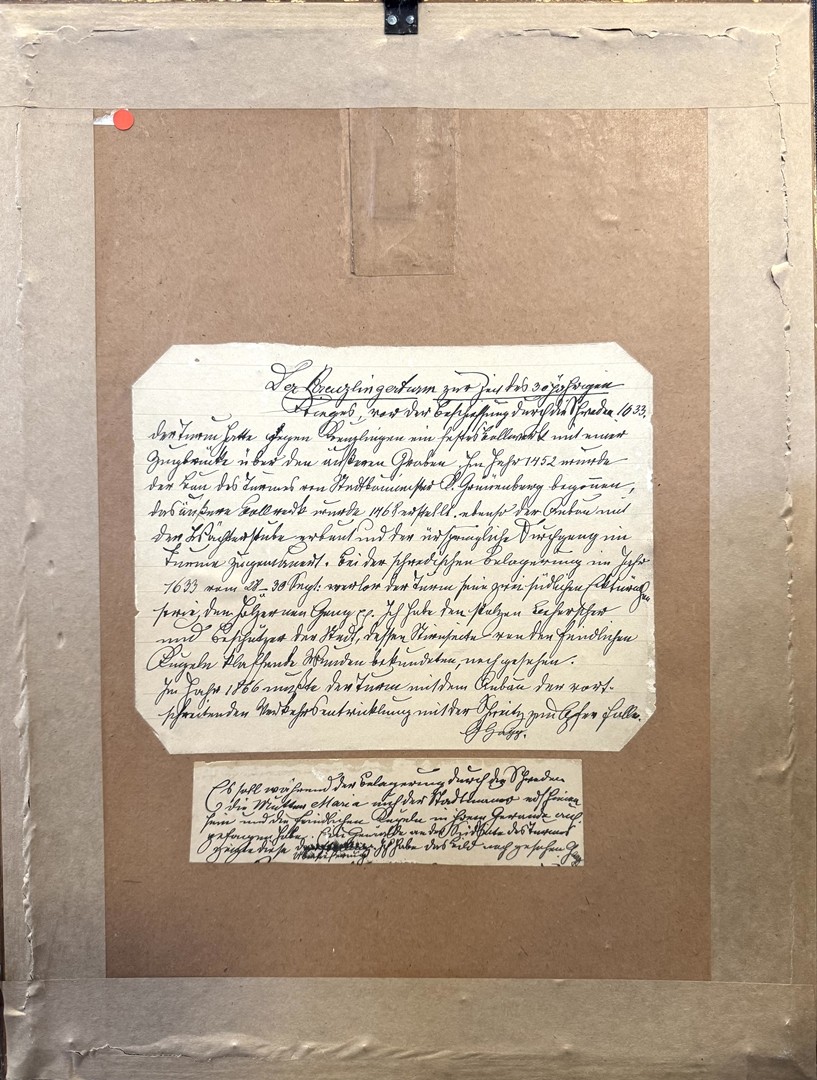 Der Kreuzlingerturm zur Zeit des 30 jährigen
Krieges, vor der Beschießung durch die Schweden 1633.
der Turm hatte gegen Kreuzlingen ein festes Bollwerk mit einer
Zugbrücke über den äußeren Graben. Im Jahr 1452 wurde
der Bau des Turmes von Stadtbaumeister K. Grünenberg begonnen,
das äußere Bollwerk wurde 1468 erstellt. ebenso der Anbau mit
der Wächterstube erbaut und der ursprüngliche Durchgang im
Turme zugemauert. Bei der schwedischen Belagerung im Jahr
1633 vom 28 – 30 Sept: verlor der Turm seine zwei südlichen
sowie den hölzernen Gang pp. Ich habe den stolzen Beherrscher
und Beschützer der Stadt, dessen Stirnseite von den feindlichen
Kugeln klaffende Wunden bekundeten, noch gesehen.
Im Jahr 1866 mußte der Turm mit dem Anbau der vort-
schreitenden Verkehrsentwicklung mit der Schweitz zum Opfer fallen.
Es soll während der Belagerung durch die Schweden
die Mutter Maria auf der Stadtmauer erschienen
sein und die feindlichen Kugeln in ihrem Gewande auf-
gefangen haben. Ein Gemälde an der Südseite des Turmes
zeigte diese
Ich habe das Bild noch gesehen